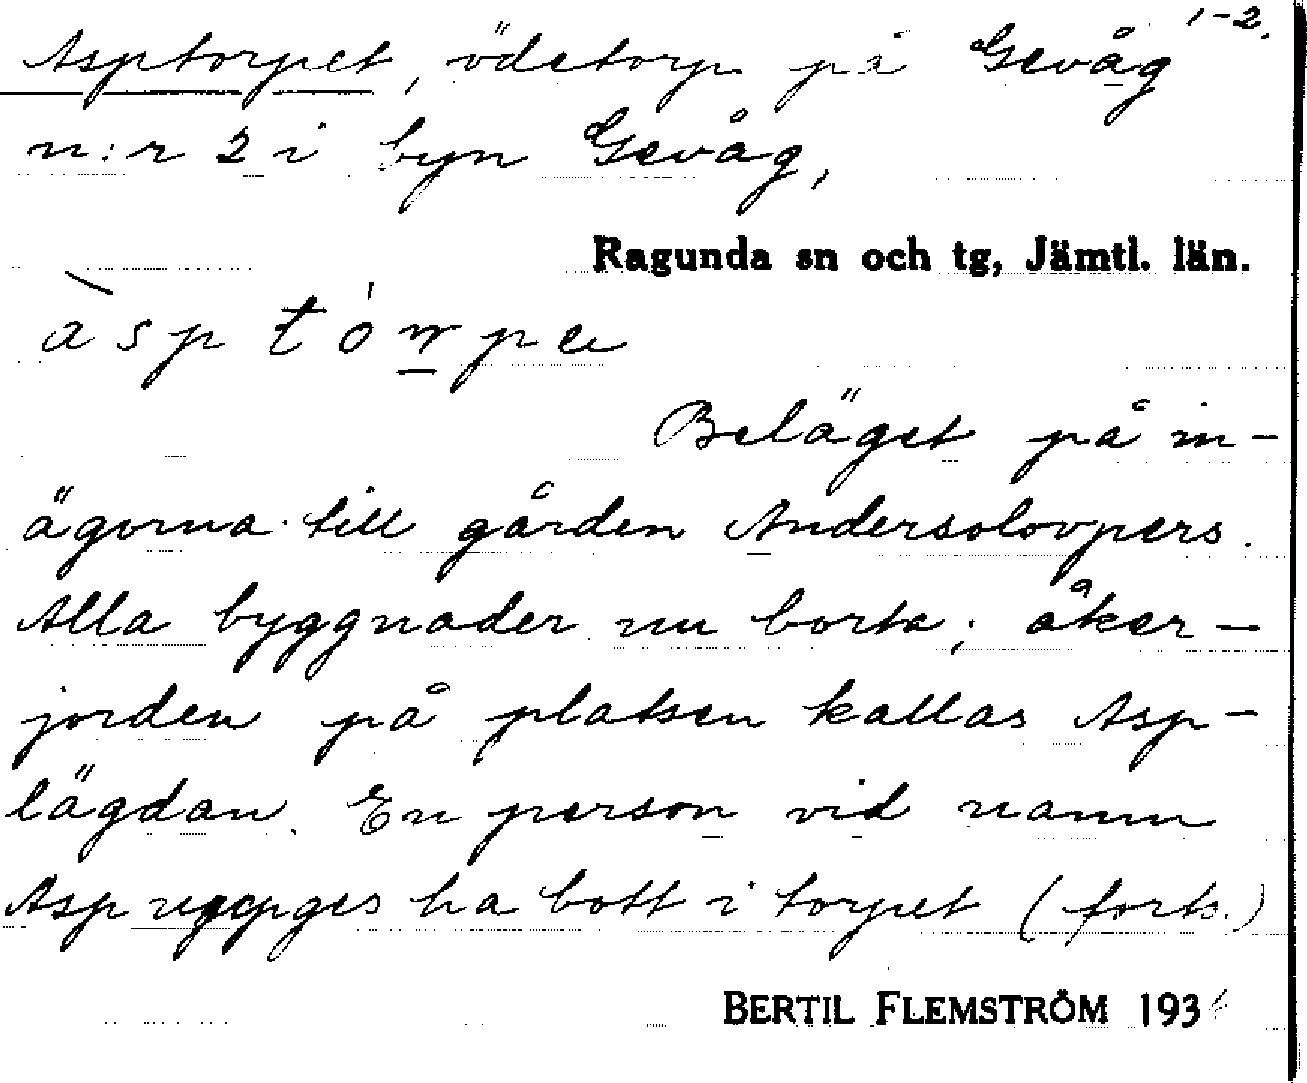 1-2.
Asptorpet, ödetorp på Gevåg
n:r 2 i byn Gevåg,
Ragunda sn och tg, Jämtl. län.
Beläget på in-
ägorna till gården Andersolovpers.
Alla byggnader nu borta; åker-
jorden på platsen kallas Asp-
lägdan. En person vid namn
Asp uppges ha bott i torpet (forts.)
BERTIL FLEMSTRÖM 193